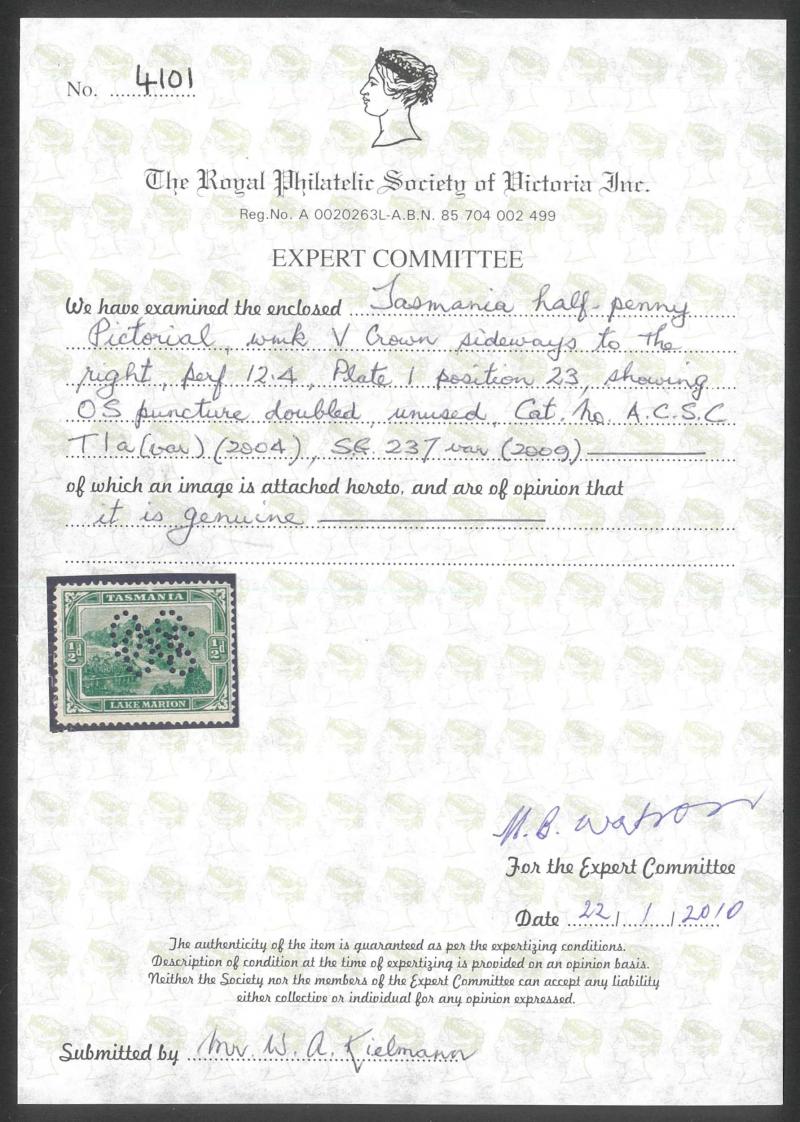 No. 4101
The Royal Philatelic Society of Victoria Inc.
Reg.No. A 0020263L-A.B.N. 85 704 002 499
EXPERT COMMITTEE
We have examined the enclosed Tasmania half-penny
Pictorial, wmk V Crown sideways to the
right, perf 12.4, Plate 1 position 23, showing
OS puncture doubled, unused, Cat. No. A.C.S.C
T1a (var) (2004), SG 237 var (2009)
of which an image is attached hereto, and are of opinion that
it is genuine
TASMANIA
½d ½d
LAKE MARION
M. B. Watson
For the Expert Committee
Date 22/1/2010
The authenticity of the item is guaranteed as per the expertizing conditions.
Description of condition at the time of expertizing is provided on an opinion basis.
Neither the Society nor the members of the Expert Committee can accept any liability
either collective or individual for any opinion expressed.
Submitted by Mr W. A. Kielmann